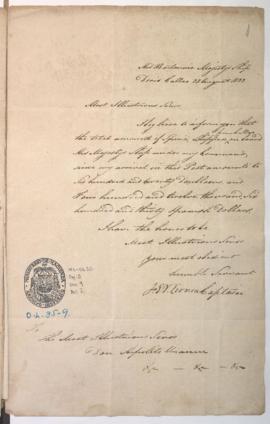 His Britannic Majesty's Ship
Doris Callao 28 August 1823
Most Illustrious Señor
I beg leave to inform you that
the total amount of Specie, Shipped on board
His Majesty's Ship under my Command,
since my arrival in this Port amounts to
Six hundred and twenty Doubloons and
Four hundred and twelve thousand Six
hundred and thirty Spanish Dollars.
I have the honor to be
Most Illustrious Señor
your most obedient
humble Servant
Captain
To
The Most Illustrious Señor
Don Hipolito Unanue
&c &c &c
O.L. 85-9